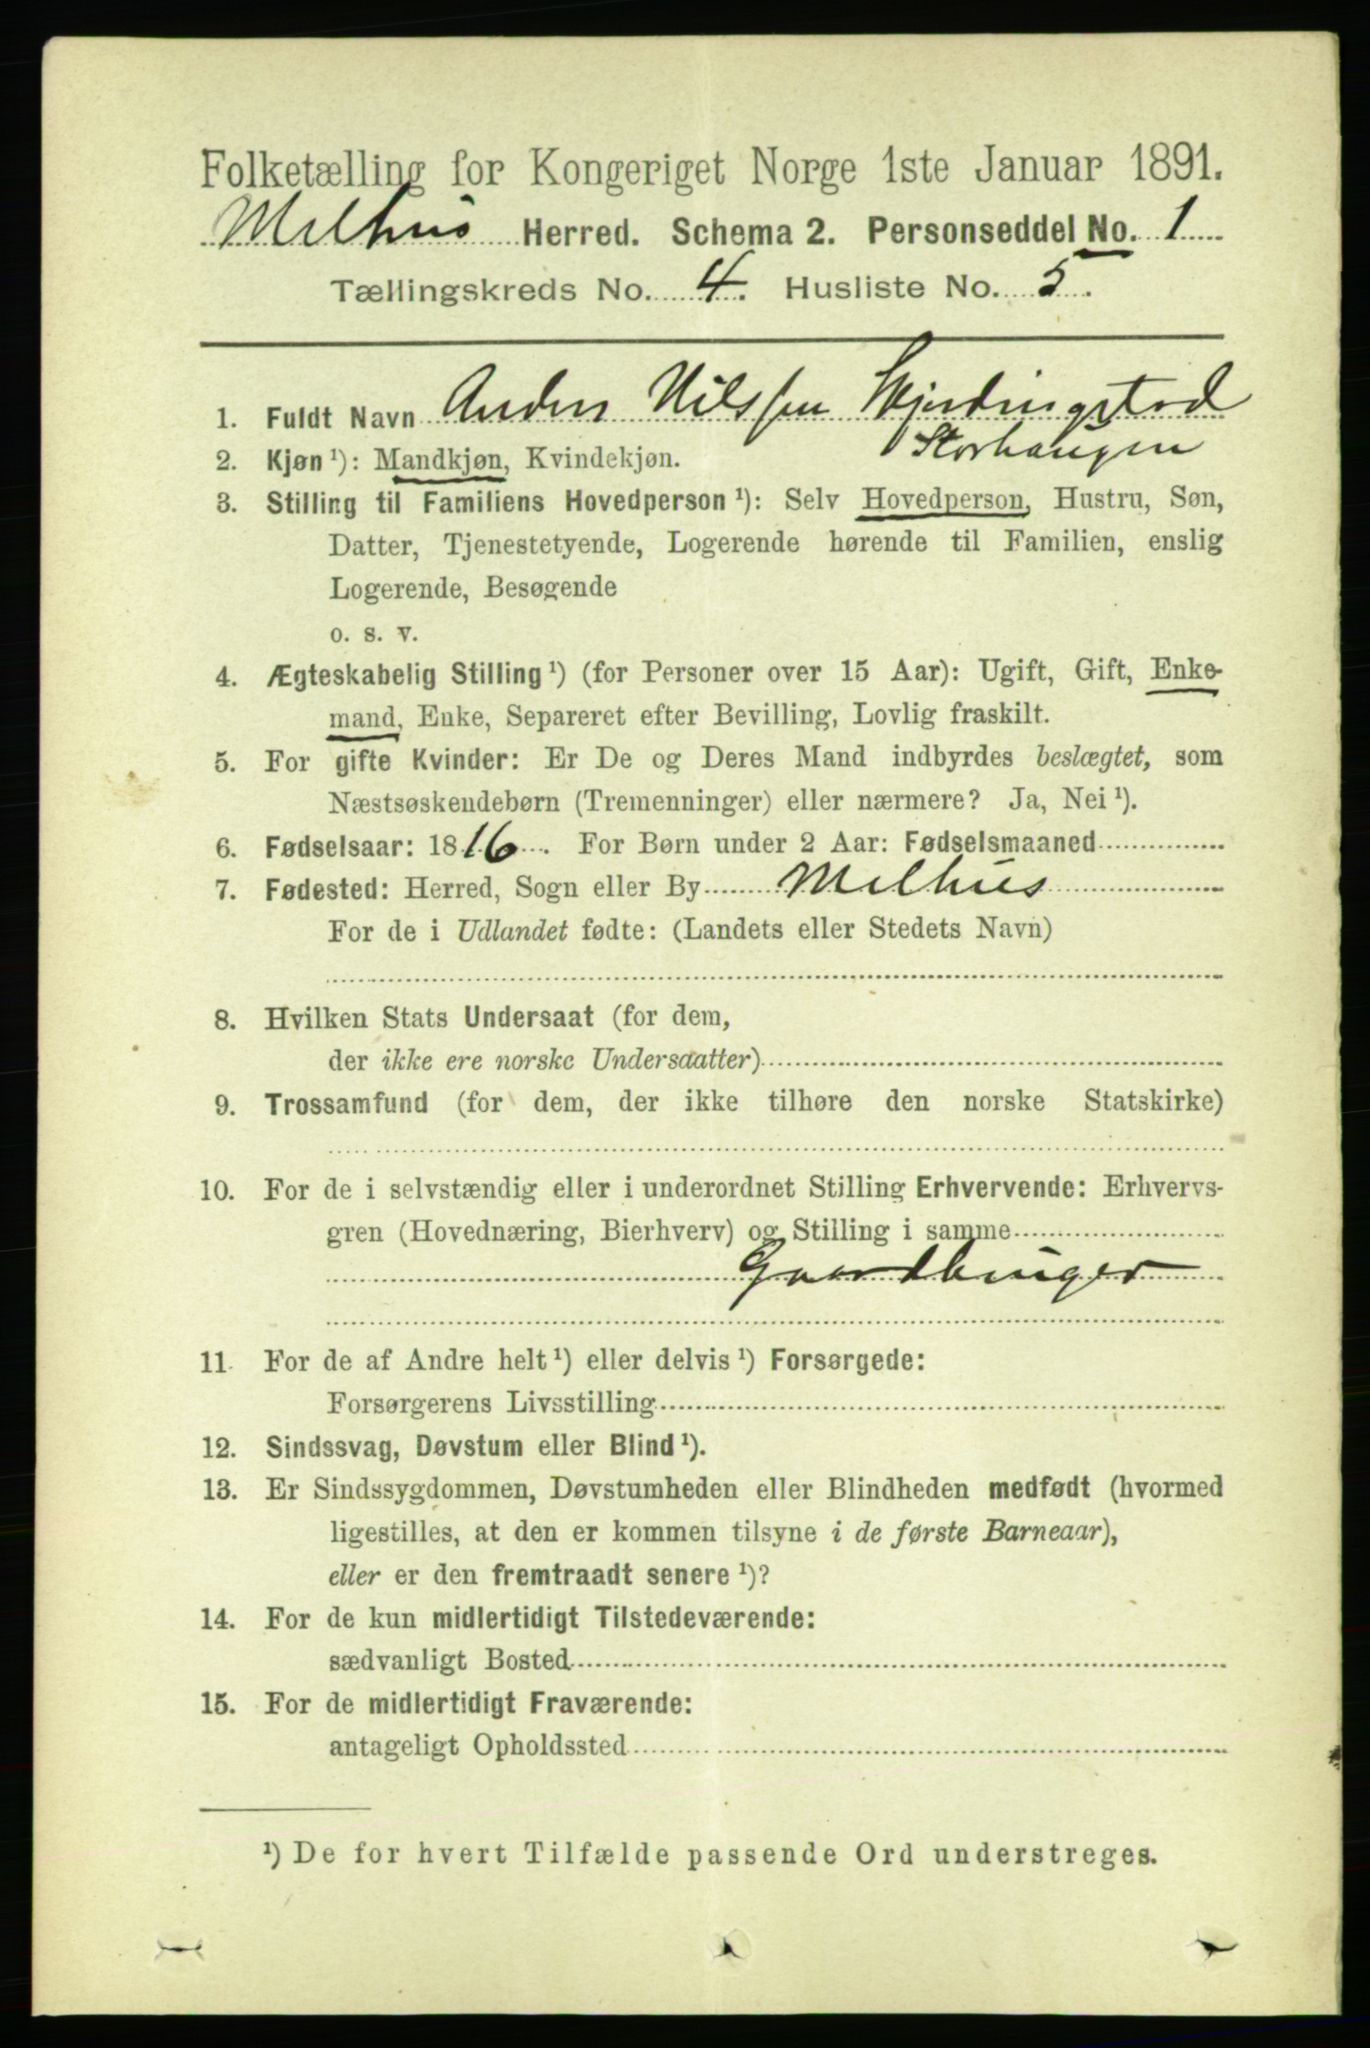 Folketælling for Kongeriget Norge 1ste Januar 1891.
Melhus Herred. Schema 2. Personseddel No. 1
Tællingskreds No. 4. Husliste No. 5.
1. Fuldt Navn Anders Nilssen Skjerdingstad
Storhaugen
2. Kjøn ¹): Mandkjøn, Kvindekjøn.
3. Stilling til Familiens Hovedperson ¹): Selv Hovedperson, Hustru, Søn,
Datter, Tjenestetyende, Logerende hørende til Familien, enslig
Logerende, Besøgende
o. s. v.
4. Ægteskabelig Stilling ¹) (for Personer over 15 Aar): Ugift, Gift, Enke-
mand, Enke, Separeret efter Bevilling, Lovlig fraskilt.
5. For gifte Kvinder: Er De og Deres Mand indbyrdes beslægtet, som
Næstsøskendebørn (Tremenninger) eller nærmere? Ja, Nei ¹).
6. Fødselsaar: 1816. For Børn under 2 Aar: Fødselsmaaned
7. Fødested: Herred, Sogn eller By Melhus
For de i Udlandet fødte: (Landets eller Stedets Navn)
8. Hvilken Stats Undersaat (for dem,
der ikke ere norske Undersaatter)
9. Trossamfund (for dem, der ikke tilhøre den norske Statskirke)
10. For de i selvstændig eller i underordnet Stilling Erhvervende: Erhvervs-
gren (Hovednæring, Bierhverv) og Stilling i samme
Gaardbruger
11 For de af Andre helt ¹) eller delvis ¹) Forsørgede:
Forsørgerens Livsstilling
12. Sindssvag, Døvstum eller Blind ¹).
13. Er Sindssygdommen, Døvstumheden eller Blindheden medfødt (hvormed
ligestilles, at den er kommen tilsyne i de første Barneaar),
eller er den fremtraadt senere ¹)?
14. For de kun midlertidigt Tilstedeværende:
sædvanligt Bosted
15. For de midlertidigt Fraværende:
antageligt Opholdssted
¹) De for hvert Tilfælde passende Ord understreges.